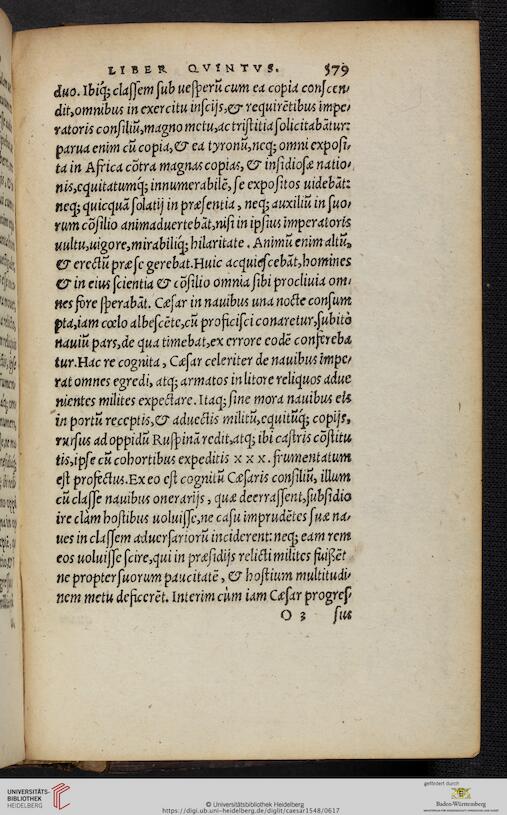 LIBER QVINTVS. 579
duo. Ibiq́; claſſem ſub ueſperũ cum ea copia conſcen-
dit, omnibus in exercitu inſcijs, & requirẽtibus impe-
ratoris conſiliũ, magno metu, ac triſtitia ſolicitabãtur:
parua enim cũ copia, & ea tyronũ, neq; omni expoſi-
ta in Africa cõtra magnas copias, & inſidioſæ natio-
nis, equitatumq; innumerabilẽ, ſe expoſitos uidebãt:
neq; quicquã ſolatij in præſentia, neq; auxiliũ in ſuo-
rum cõſilio animaduertebãt, niſi in ipſius imperatoris
uultu, uigore, mirabiliq; hilaritate. Animũ enim altũ,
& erectũ præ ſe gerebat. Huic acquieſcebãt, homines
& in eius ſcientia & cõſilio omnia ſibi procliuia om-
nes fore ſperabãt. Cæſar in nauibus una nocte conſum
pta, iam cœlo albeſcẽte, cũ proficiſci conaretur, ſubitò
nauiũ pars, de qua timebat, ex errore codẽ confereba
tur. Hac re cognita, Cæſar celeriter de nauibus impe-
rat omnes egredi, atq; armatos in litore reliquos adue
nientes milites expectare. Itaq; ſine mora nauibus eis
in portũ receptis, & aduectis militũ, equitũq́; copijs,
rurſus ad oppidũ Ruſpinã redit, atq; ibi caſtris cõſtitu
tis, ipſe cũ cohortibus expeditis x x x. frumentatum
eſt profectus. Ex eo eſt cognitũ Cæſaris conſiliũ, illum
cũ claſſe nauibus onerarijs, quæ deerraſſent, ſubſidio
ire clàm hoſtibus uoluiſſe, ne caſu imprudẽtes ſuæ na-
ues in claſſem aduerſariorũ inciderent: neq; eam rem
eos uoluiſſe ſcire, qui in præſidijs relicti milites fuiſſẽt
ne propter ſuorum paucitatẽ, & hoſtium multitudi-
nem metu deficerẽt. Interim cùm iam Cæſar progreſ-
O 3 ſus
UNIVERSITÄTS-
BIBLIOTHEK
HEIDELBERG
© Universitätsbibliothek Heidelberg
https://digi.ub.uni-heidelberg.de/diglit/caesar1548/0617
gefördert durch
Baden-Württemberg